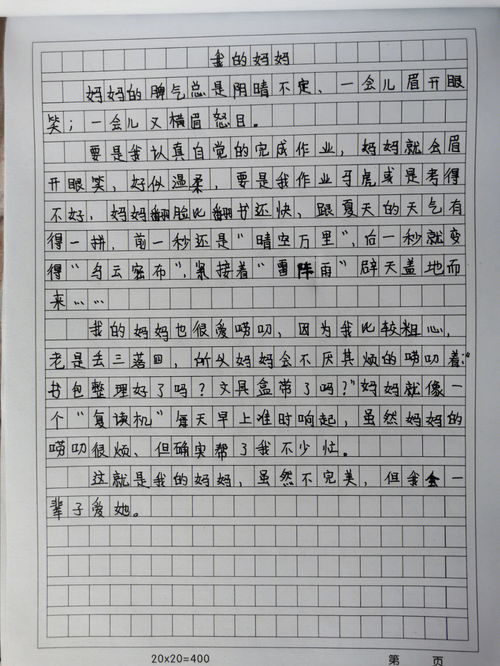 我的妈妈
妈妈的脾气总是阴晴不定、一会儿眉开眼
笑；一会儿又横眉怒目。
要是我认真自觉的完成作业，妈妈就会眉
开眼笑，好似温柔，要是我作业马虎或是考得
不好，妈妈翻脸比翻书还快、跟夏天的天气有
得一拼，前一秒还是“晴空万里”，后一秒就变
得“乌云密布”，紧接着“雷阵雨”辟天盖地而
来……
我的妈妈也很爱唠叨，因为我比较粗心，
老是丢三落四，所以妈妈会不厌其烦的唠叨着：“
书包整理好了吗？文具盒带了吗？”妈妈就像一
个“复读机”每天早上准时响起，虽然妈妈的
唠叨很烦、但确实帮了我不少忙。
这就是我的妈妈，虽然不完美，但我会一
辈子爱她。
20×20=400 第 页